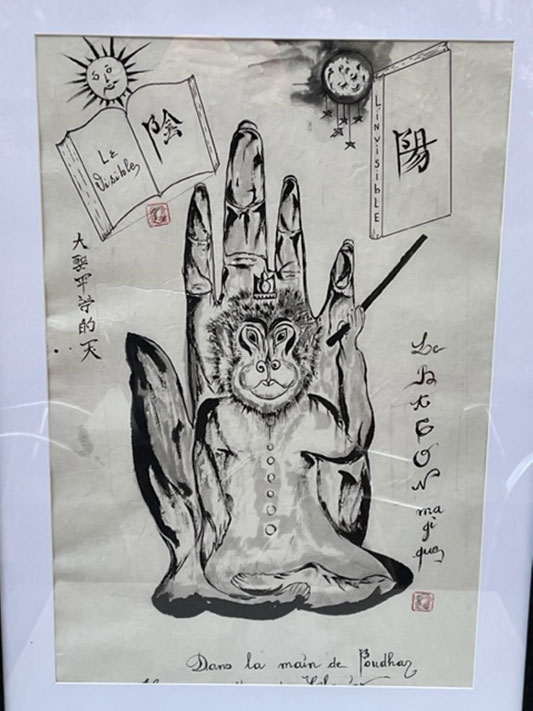 Le
Visible
陰
L'INVISIBLE
陽
大聖平等的天
Le
BATON
ma
gi
que
Dans la main de Boudha